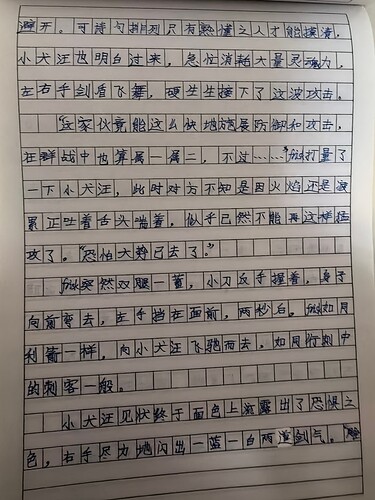 避开。可诗勾排列只有熟懂之人才能摸清，
小犬汪也明白过来，急忙消耗大量灵魂力，
左右手剑盾飞舞，硬生生接下了这波攻击。
“这家伙竟能这么快地施展防御和攻击，
在群战中也算属一属二，不过……”打量了
一下小犬汪，此时对方不知是因火焰还是
累正吐着舌头喘着，似乎已然不能再这样猛
攻了。“恐怕大势已去了。”
突然双腿一蹬，小刀反手握着，身子
向前弯去，左手挡在面前，两秒后。如同
利箭一样，向小犬汪飞驰而去，如同行刺中
的刺客一般。
小犬汪见状终于面色上流露出了恐惧之
色，右手尽力地闪出一蓝一白两道剑气。